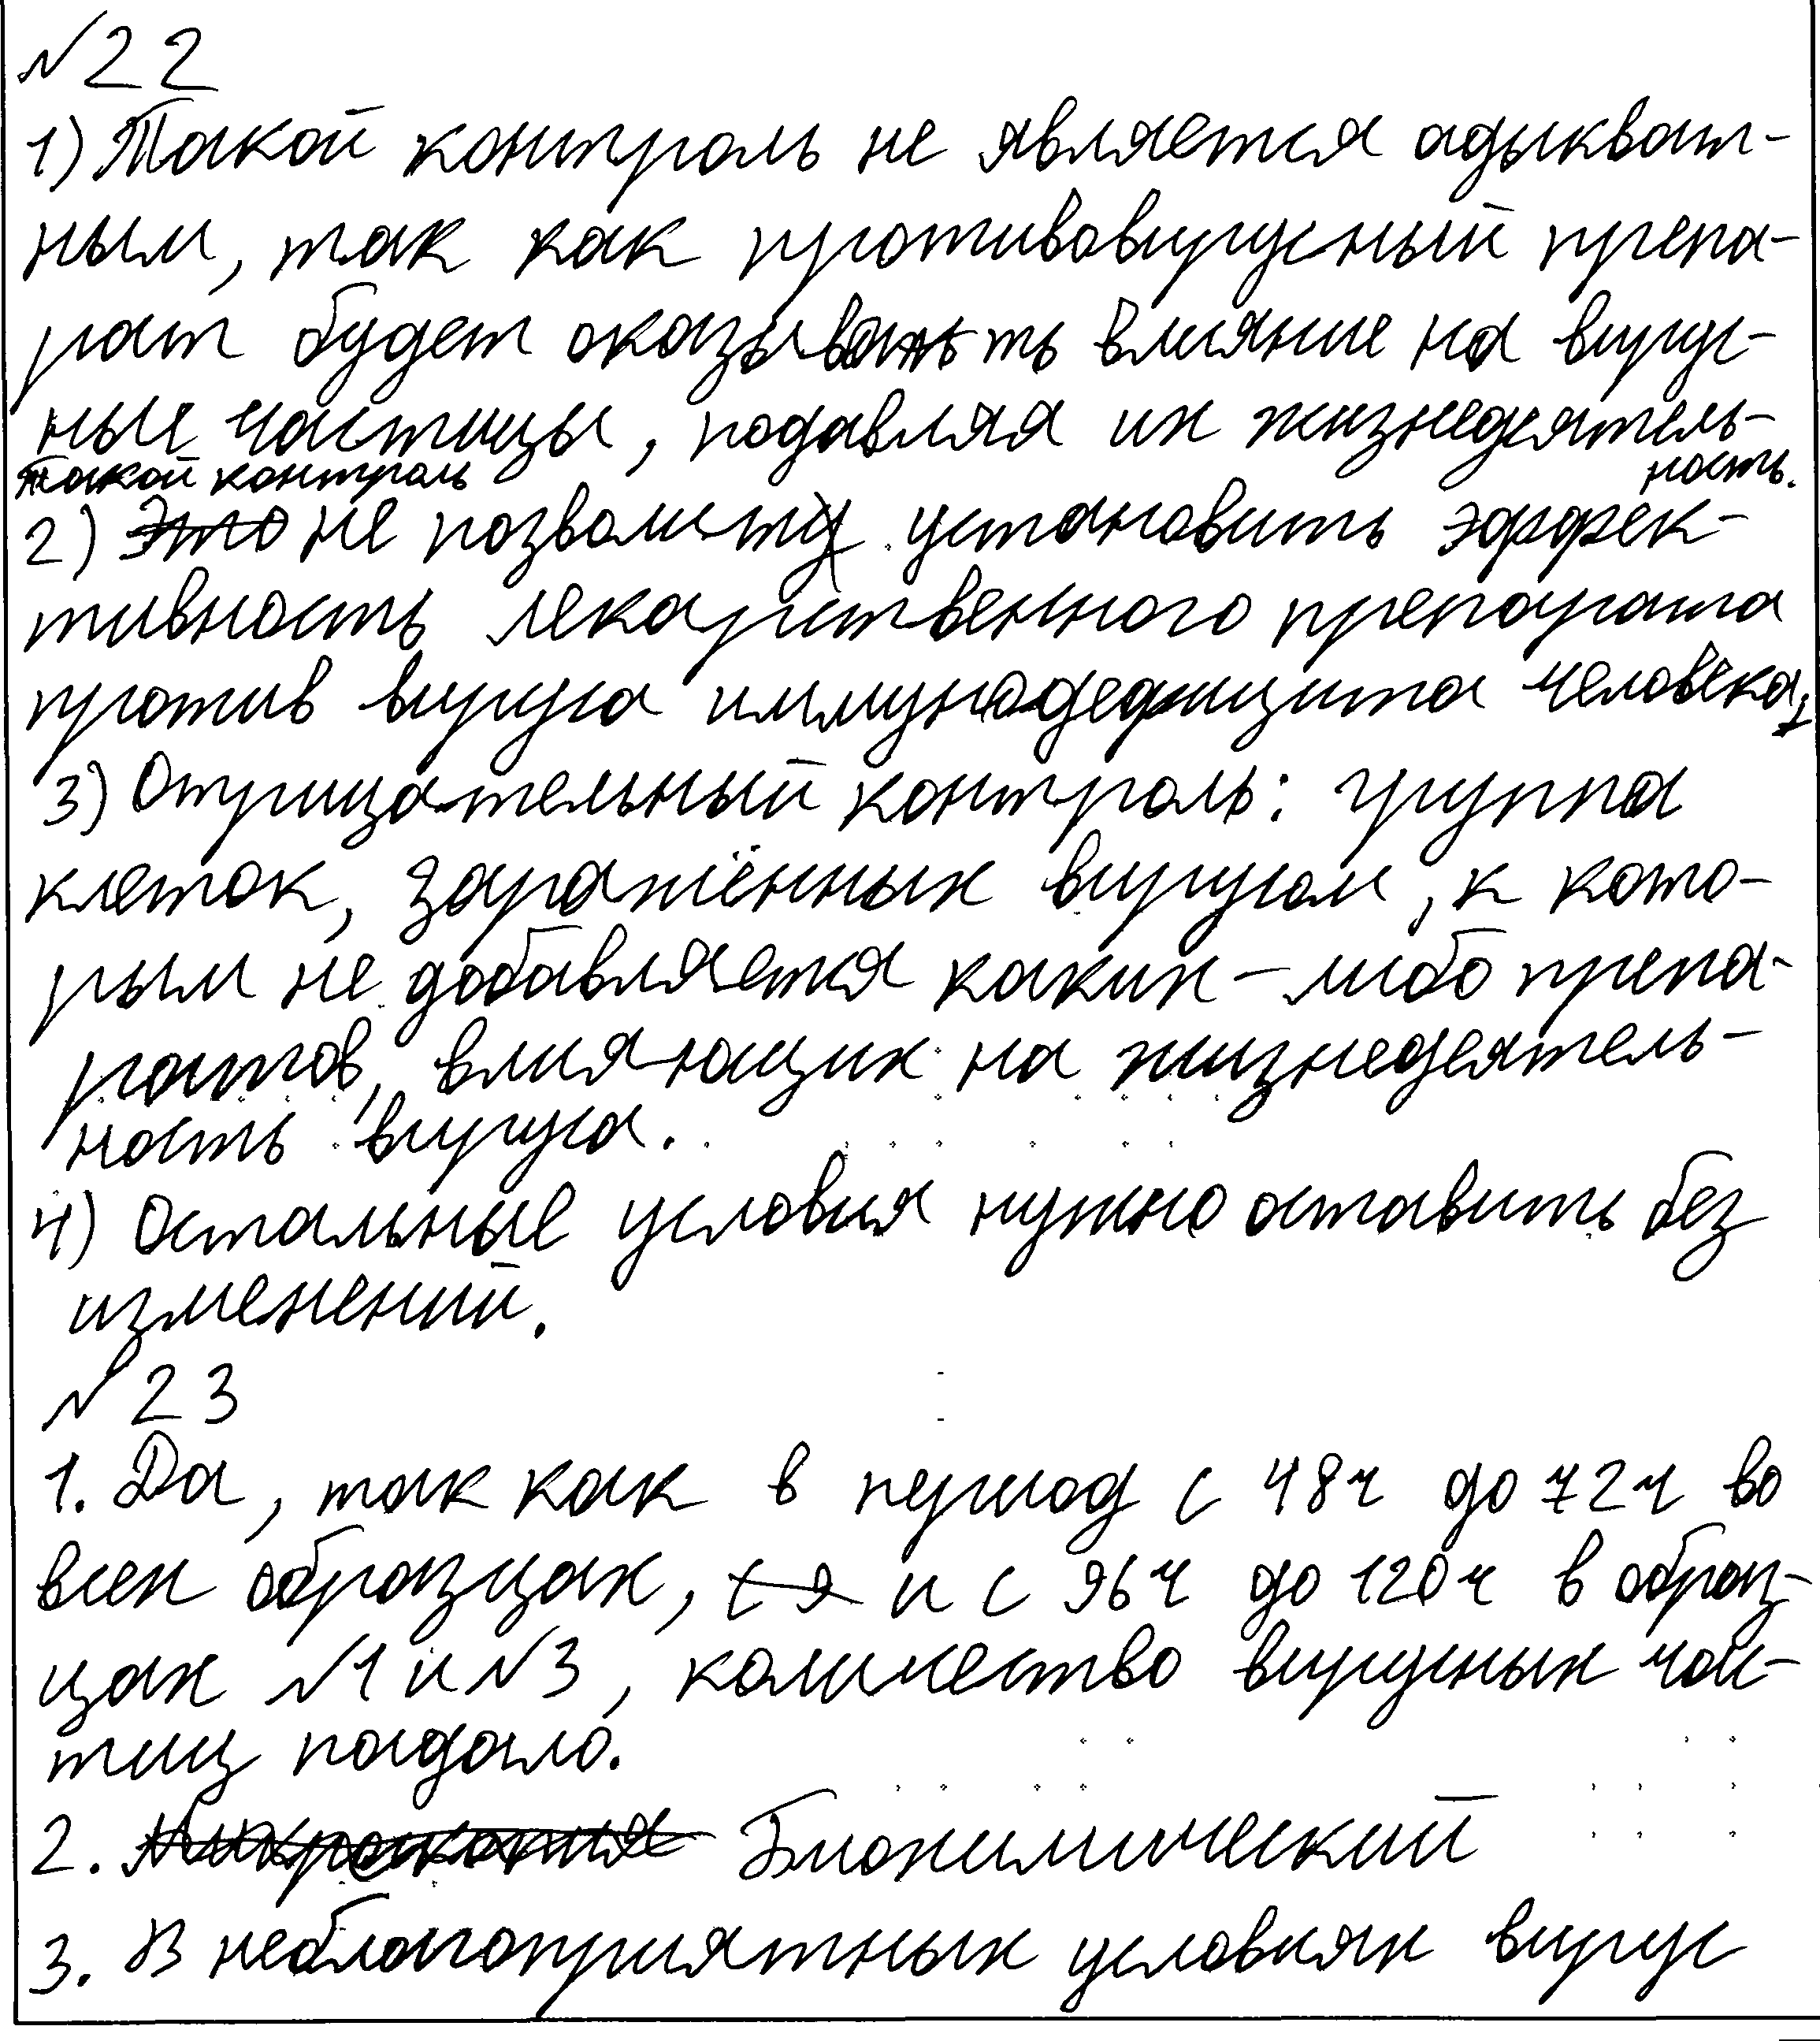 №22
1) Такой контроль не является адыкват-
ным, так как противовирусный препа-
рат будет оказывать влияние на вирус-
ные частицы, подавляя их жизнедеятель-
ность.
2) Такой контроль не позволит установить эффек-
тивность лекарственного препарата
против вируса иммунодефицита человека;
3) Отрицательный контроль: группа
клеток, заражённых вирусом, к кото-
рым не добавляется каких-либо препа-
ратов, влияющих на жизнедеятель-
ность вируса.
4) Остальные условия нужно оставить без
изменений.
№23
1. Да, так как в период с 48ч до 72ч во
всех образцах, и с 96ч до 120ч в образ-
цах №1 и №3, количество вирусных час-
тиц падало.
2. Биохимический
3. В неблагоприятных условиях вирус